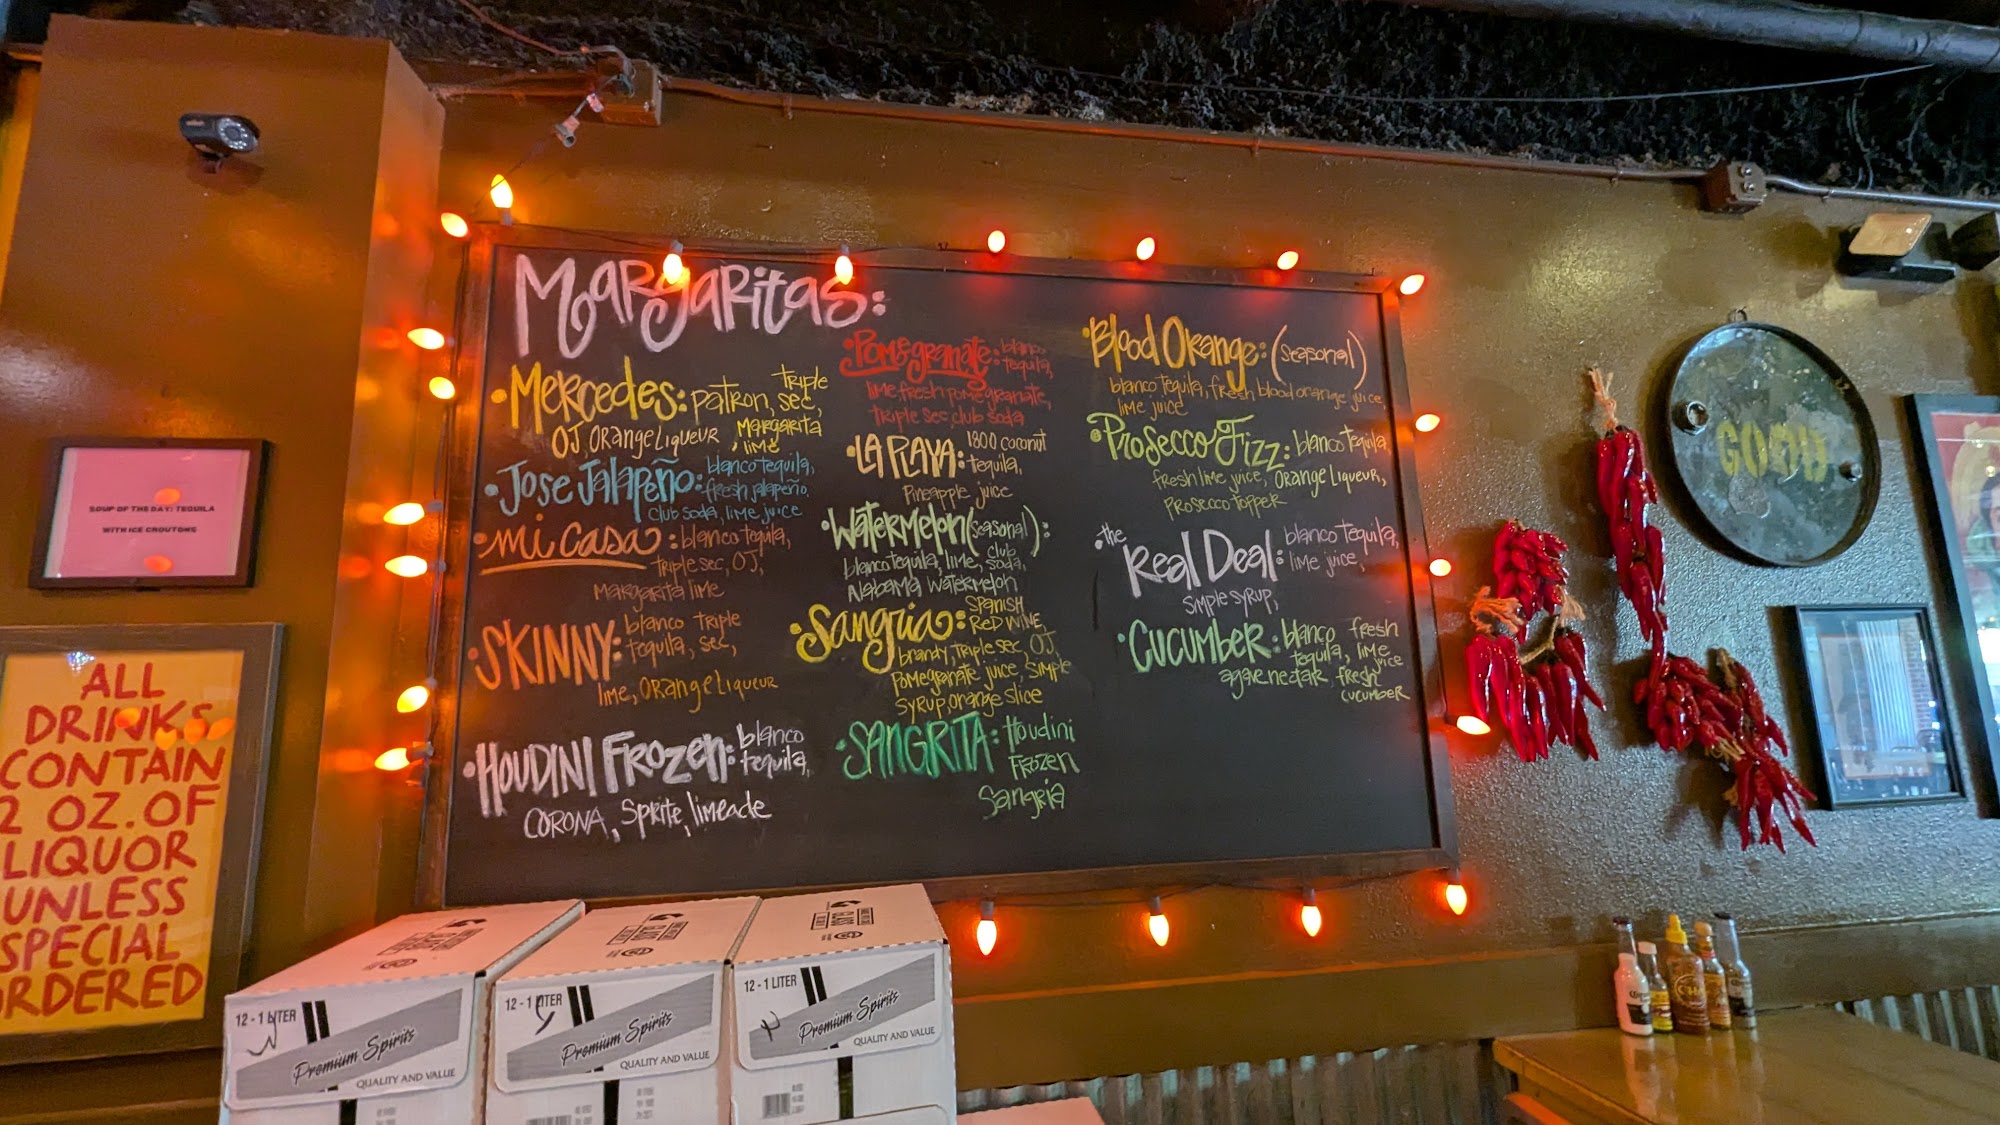 Margaritas:
• Mercedes: patron, triple sec,
OJ, Orange Liqueur, Margarita lime
• Jose Jalapeño: blanco tequila,
fresh jalapeño,
club soda, lime juice
• mi casa: blanco tequila,
triple sec, OJ,
margarita lime
• SKINNY: blanco tequila, triple sec,
lime, orange Liqueur
• Houdini Frozen: blanco tequila,
CORONA, Sprite, limeade
• Pomegranate: blanco tequila,
lime, fresh pomegranate,
triple sec, club soda
• LA PLAYA: 1800 coconut
tequila,
Pineapple juice
• Watermelon (seasonal):
blanco tequila, lime, club soda,
Alabama watermelon
• Sangria: SPANISH
RED WINE,
brandy, triple sec, OJ,
Pomegranate juice, simple
syrup, orange slice
• SANGRITA: Houdini
Frozen
Sangria
• Blood Orange: (seasonal)
blanco tequila, fresh blood orange juice,
lime juice
• Prosecco Fizz: blanco tequila,
fresh lime juice, orange Liqueur,
Prosecco topper
• the Real Deal: blanco tequila,
lime juice,
simple syrup,
• Cucumber: blanco tequila, fresh lime juice
agave nectar, fresh cucumber
SOUP OF THE DAY: TEQUILA
WITH ICE CROUTONS
ALL
DRINKS
CONTAIN
2 OZ. OF
LIQUOR
UNLESS
SPECIAL
ORDERED
GOOD
12 - 1 LITER
Premium Spirits
QUALITY AND VALUE
12 - 1 LITER
Premium Spirits
QUALITY AND VALUE
12 - 1 LITER
Premium Spirits
QUALITY AND VALUE